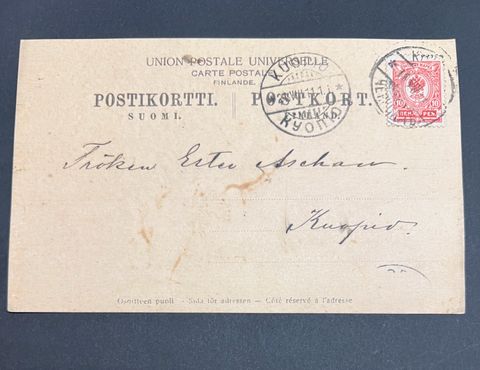 UNION POSTALE UNIVERSELLE
CARTE POSTALE
FINLANDE.
POSTIKORTTI. POSTKORT.
SUOMI. FINLAND.
KUOPIO
КУОПІО
10 10
ПЕН. PEN
Fröken Ester Aschan.
Kuopio.
Osoitteen puoli - Sida för adressen - Côté réservé à l'adresse